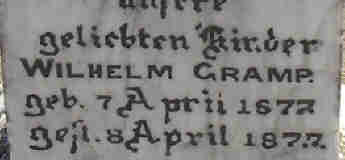 unsere
geliebten Kinder
WILHELM GRAMP.
geb. 7 April 1877.
gest. 8 April 1877.